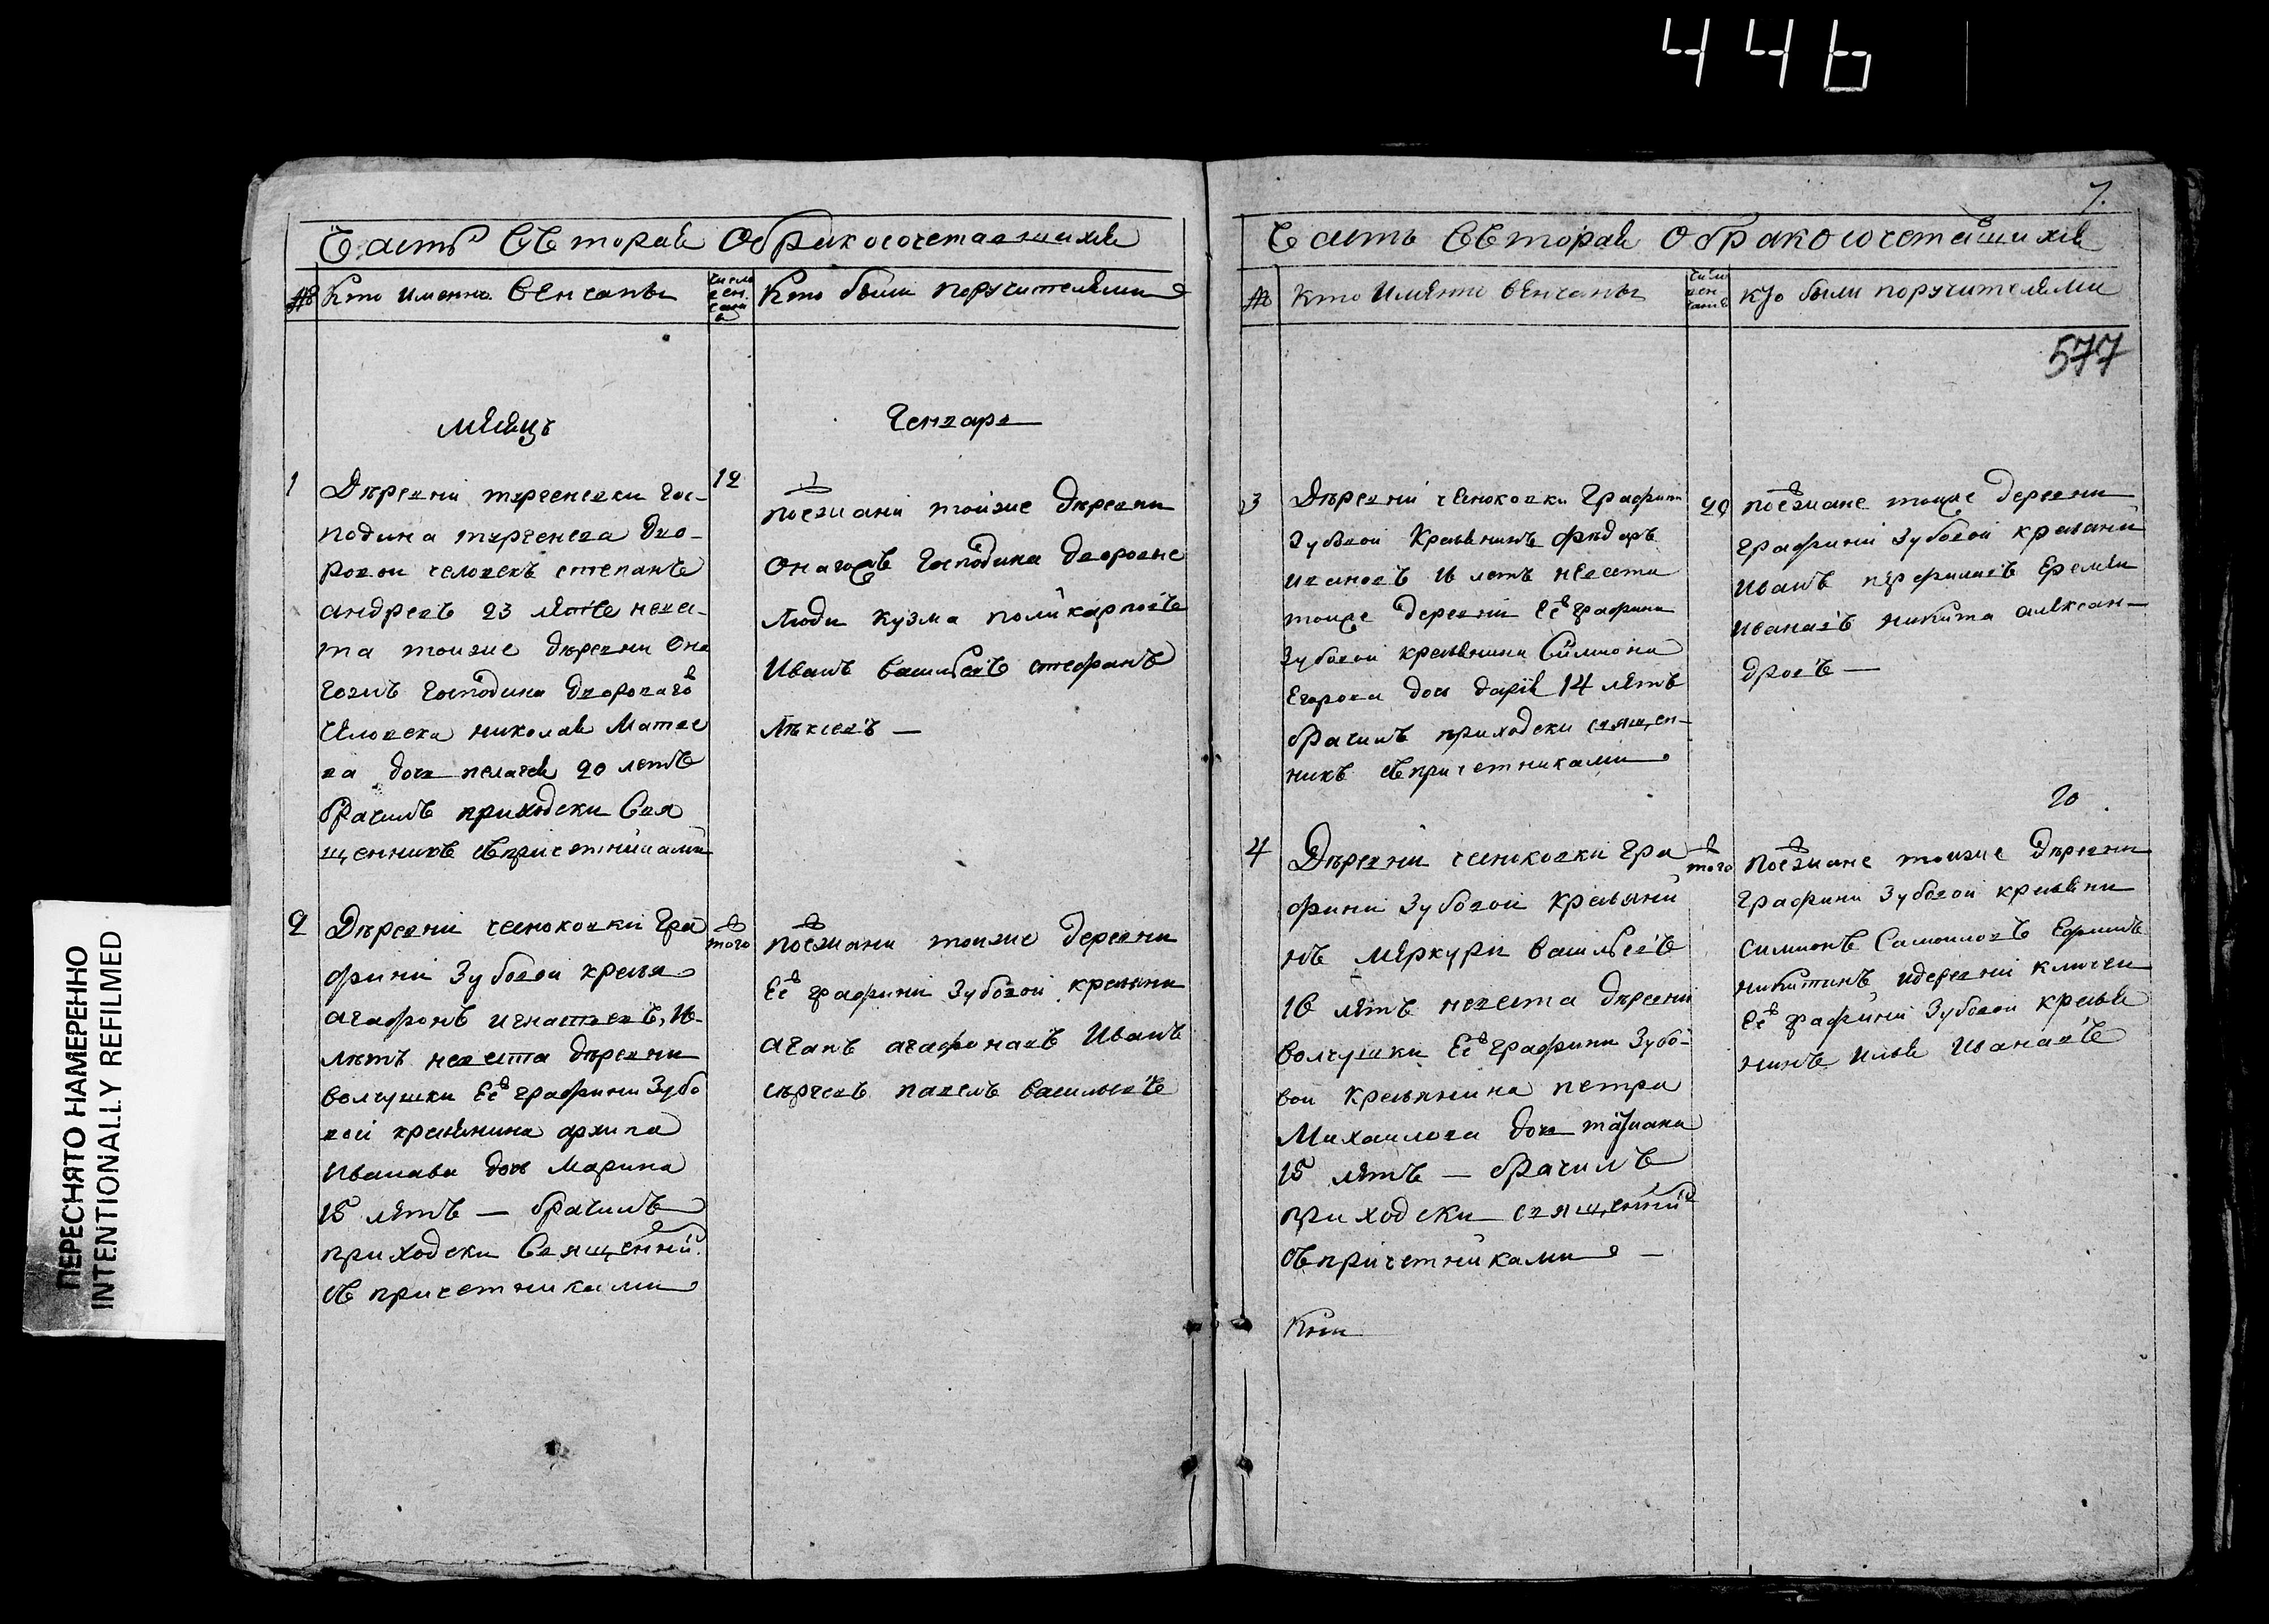 446
ПЕРЕСНЯТО НАМЕРЕННО
INTENTIONALLY REFILMED
Часть Вторая Обракосочетавшихся
№ Кто именно венчаны
число венчания
Кто были поручителями
месяц
генваря
1
Деревни тургеневки гос-
подина тургенева дво-
ровои человекъ степанъ
андреевъ 23 летъ невес-
та тоиже деревни она
гожъ господина двороваго
человека николая Матвее
ва дочь пелагея 20 летъ
брачилъ приходски Свя
щенникъ съ причетниками
12
поезжани тоиже деревни
онагожъ господина дворовые
люди кузма поликарповъ
Иванъ васильевъ стефанъ
алексеевъ —
2
Деревни чесноковки гра
фини Зубовой кресья
агафонъ игнатьевъ, 16
летъ невеста деревни
волчушки Ее графини Зубо
вой кресьянина архипа
Иванава дочь Марина
15 летъ — брачилъ
приходски Священни
съ причетниками
того
поезжани тоиже деревни
Ее графини Зубовой кресьяни
агапъ агафонавъ Иванъ
сергеевъ павелъ васильевъ
7.
Часть Вторая Обракосочетавшихся
№ Кто имянно венчаны
число венчания
кто были поручителями
577
3
Деревни чесноковки графини
Зубовой Кресьянинъ федоръ
ивановъ 16 летъ невеста
тоиже деревни Ее графини
Зубовой кресьянина Симиона
Егорова дочь дарья 14 летъ
брачилъ приходски священ-
никъ съ причетниками
20
поезжане тоиже деревни
графини Зубовой кресьяни
Иванъ перфильевъ Еремеи
ивановъ никита алексан-
дровъ —
4
Деревни чесноковки гра
фини Зубовой Кресьяни
нъ меркури васильевъ
16 летъ невеста деревни
волчушки Ее графини Зубо-
вои Кресьянина петра
Михаилова дочь татиана
15 летъ — брачилъ
приходски священни
съ причетниками —
того
20
поезжане тоиже деревни
графини Зубовой кресьяни
симионъ Самоиловъ Ефимъ
никитинъ идеревни ключи
Ее графини Зубовой кресья
нинъ Илья Ивановъ